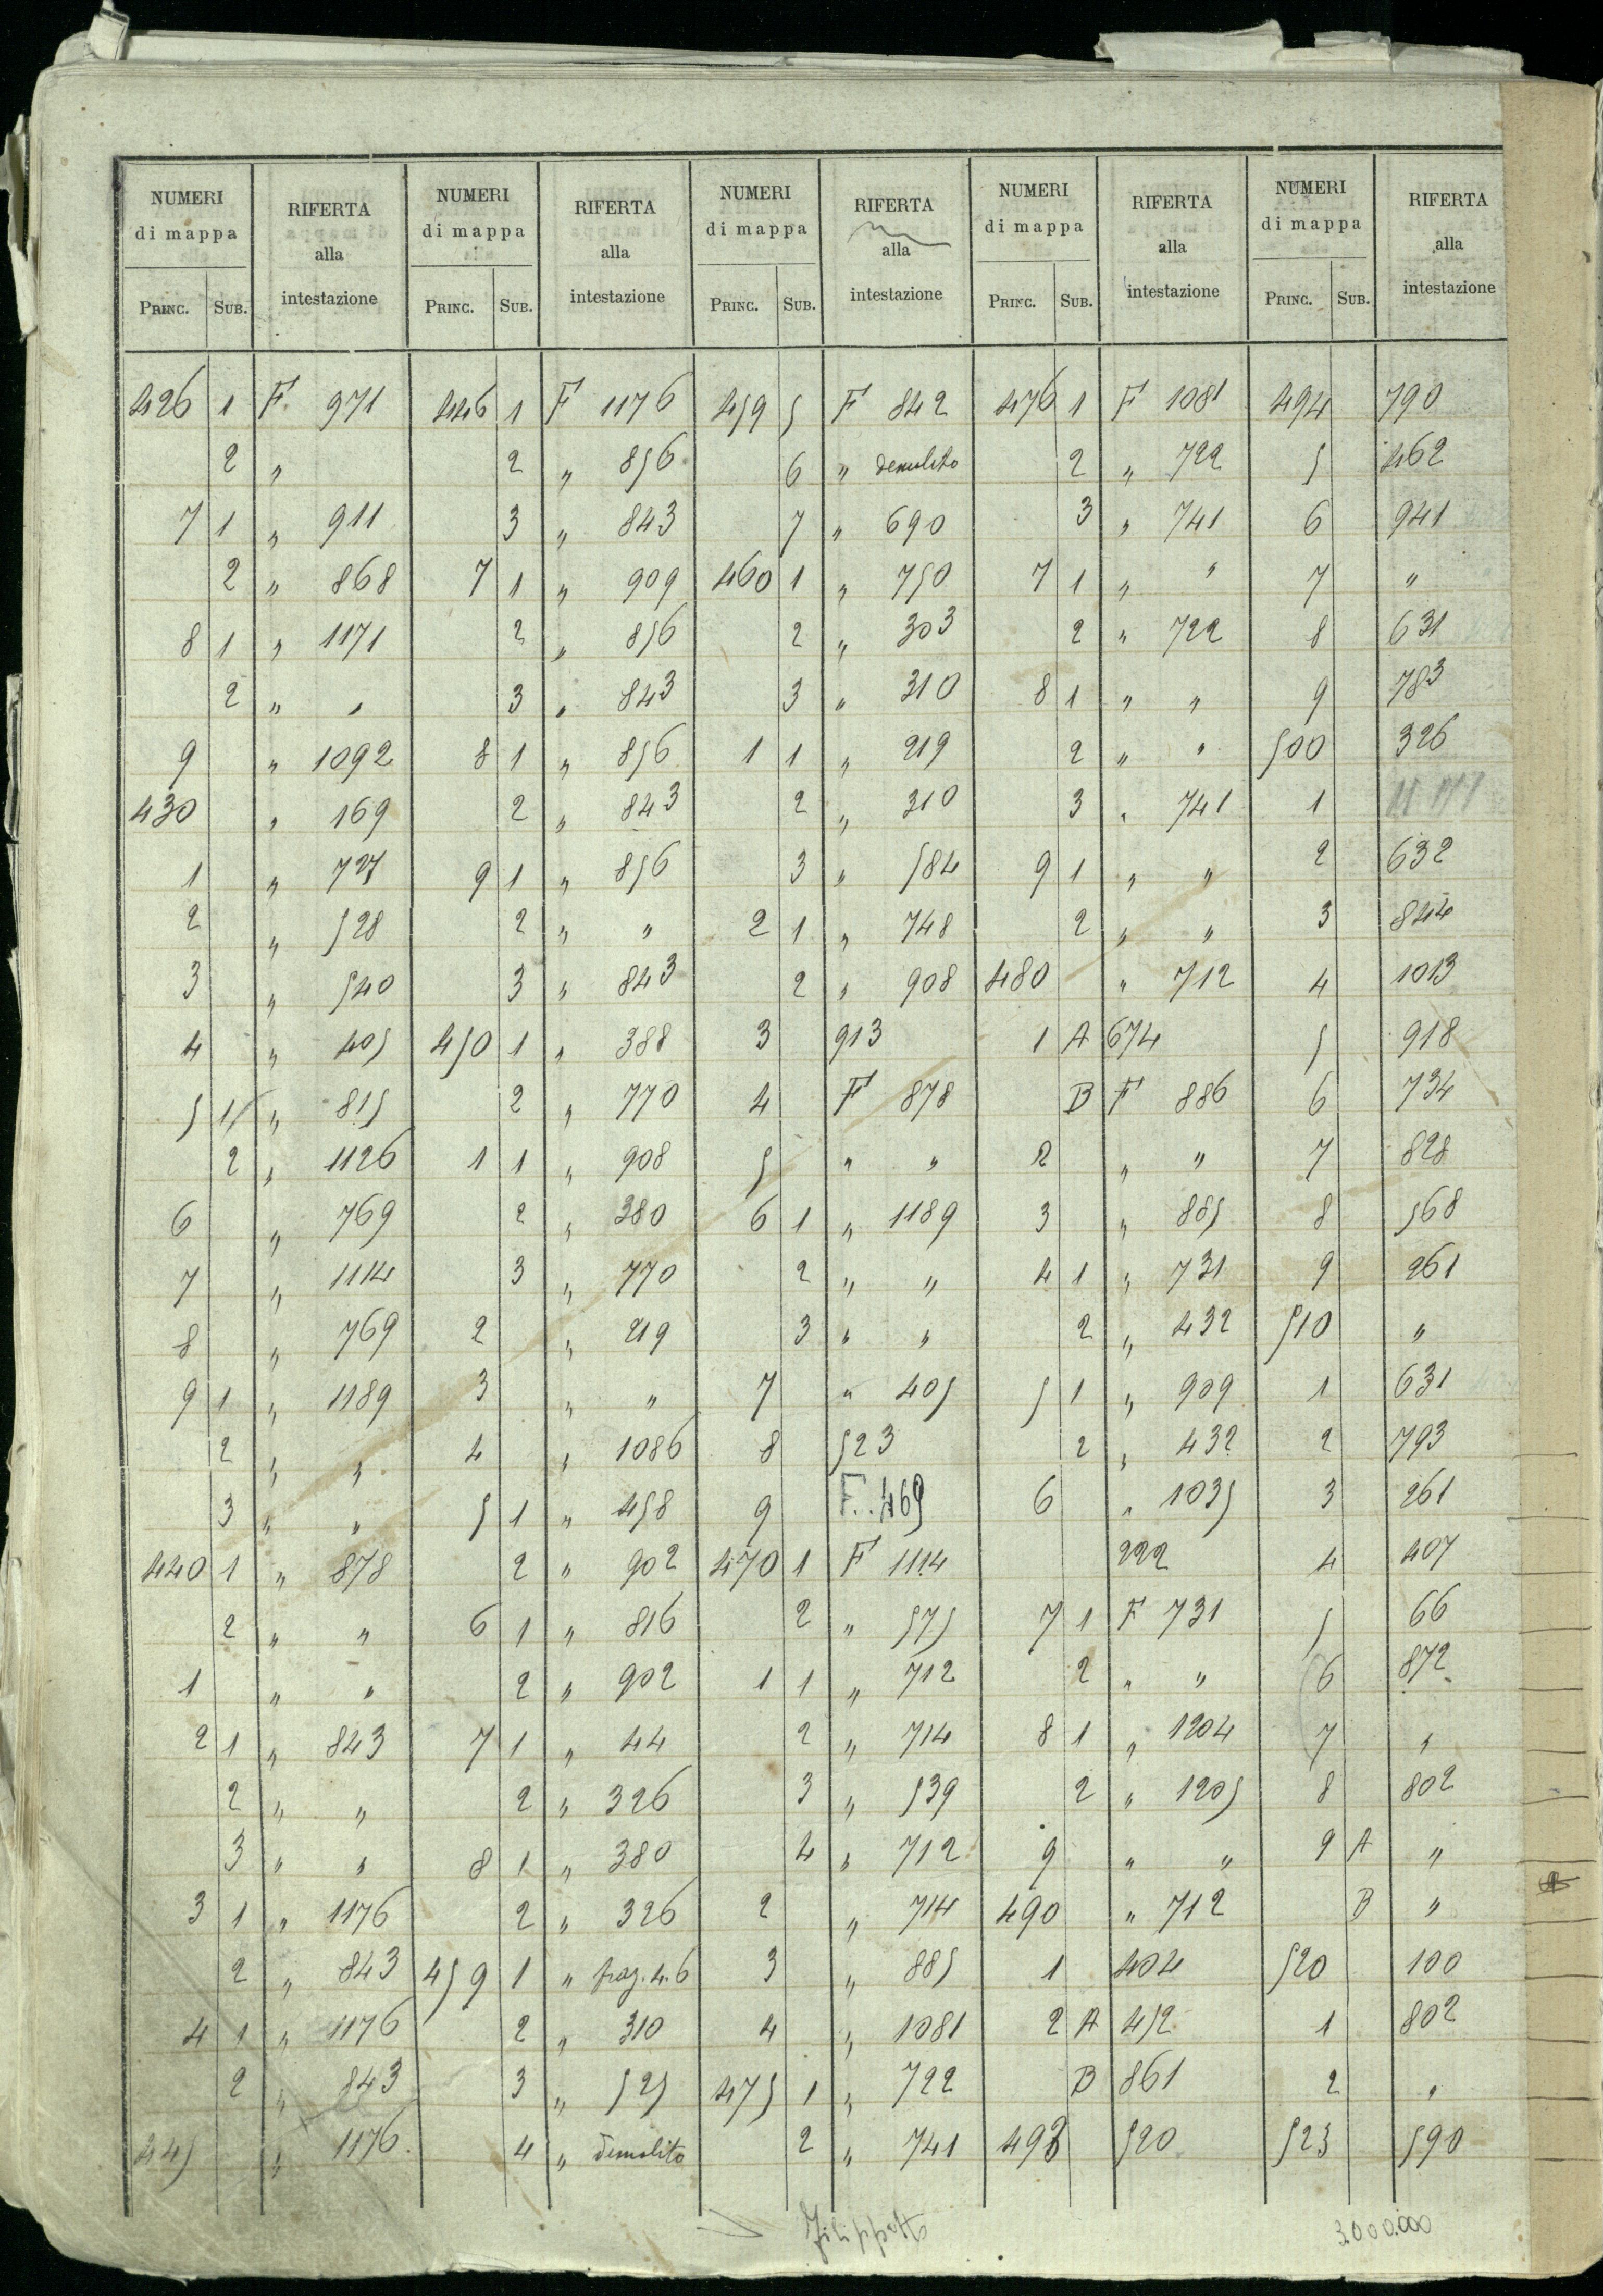 NUMERI di mappa RIFERTA alla intestazione NUMERI di mappa RIFERTA alla intestazione NUMERI di mappa RIFERTA alla intestazione NUMERI di mappa RIFERTA alla intestazione NUMERI di mappa RIFERTA alla intestazione
PRINC. SUB. PRINC. SUB. PRINC. SUB. PRINC. SUB. PRINC. SUB.
426 1 F 971 446 1 F 1176 459 5 F 842 476 1 F 1081 494 790
2 " 2 " 856 6 " demolito 2 " 722 5 462
7 1 " 911 3 " 843 7 " 690 3 " 741 6 941
2 " 868 7 1 " 909 460 1 " 750 7 1 " " 7 "
8 1 " 1171 2 " 856 2 " 303 2 " 722 8 631
2 " " 3 " 843 3 " 310 8 1 " " 9 783
9 " 1092 8 1 " 856 1 1 " 219 2 " " 500 326
430 " 169 2 " 843 2 " 310 3 " 741 1
1 " 727 9 1 " 856 3 " 584 9 1 " " 2 632
2 " 528 2 " " 2 1 " 748 2 " " 3 844
3 " 540 3 " 843 2 " 908 480 " 712 4 1013
4 " 405 450 1 " 388 3 913 1 A 674 5 918
5 1 " 815 2 " 770 4 F 878 B F 886 6 734
2 " 1126 1 1 " 908 5 " " 2 " " 7 828
6 " 769 2 " 380 6 1 " 1189 3 " 885 8 568
7 " 1114 3 " 770 2 " " 4 1 " 731 9 261
8 " 769 2 " 219 3 " " 2 " 432 510 "
9 1 " 1189 3 " " 7 " 405 5 1 " 909 1 631
2 " " 4 " 1086 8 523 2 " 432 2 793
3 " " 5 1 " 458 9 F. 469 6 " 1035 3 261
440 1 " 878 2 " 902 470 1 F 1114 222 4 407
2 " " 6 1 " 816 2 " 575 7 1 F 731 5 66
1 " " 2 " 902 1 1 " 712 2 " " 6 872
2 1 " 843 7 1 " 44 2 " 714 8 1 " 1204 7 "
2 " " 2 " 326 3 " 539 2 " 1205 8 802
3 " " 8 1 " 380 4 " 712 9 " " 9 A "
3 1 " 1176 2 " 326 2 " 714 490 " 712 B "
2 " 843 459 1 " 3 " 885 1 404 520 100
4 1 " 1176 2 " 310 4 " 1081 2 A 452 1 802
2 " 843 3 " 525 475 1 " 722 B 861 2 "
445 " 1176 4 " demolito 2 " 741 493 520 523 590
3.000.000